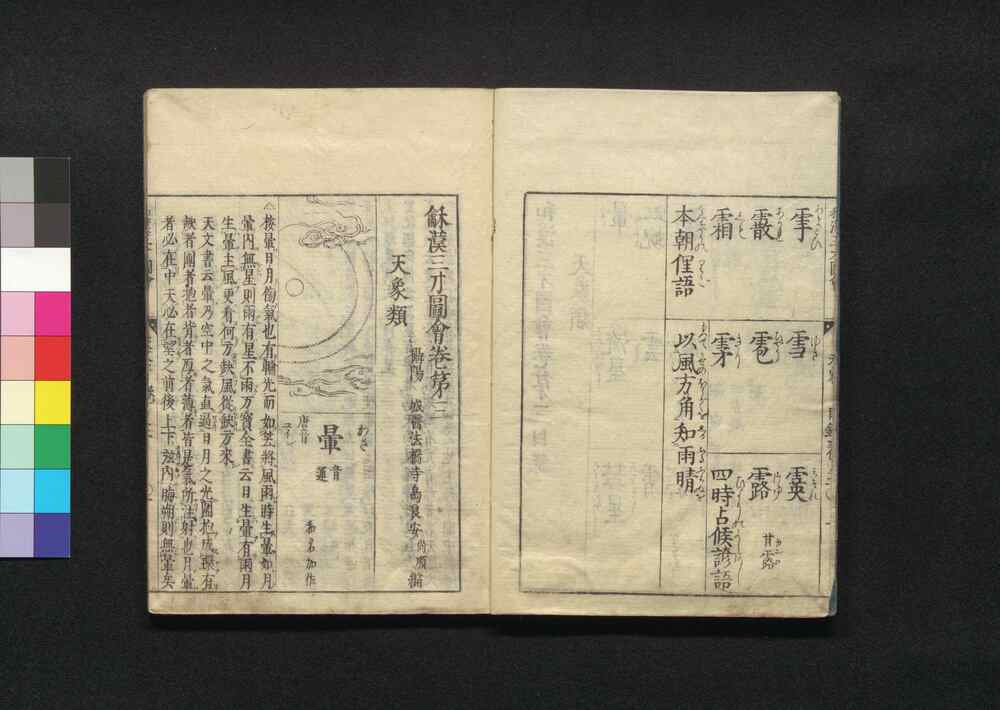 雪
霙
霰
雹
露
甘露
霜
本朝俚語
以風方角知雨晴
四時占候諺語
龢漢三才圖會卷第三
攝陽 城醫法橋寺島良安尚順編
天象類
暈
音運
唐音
△按暈日月傍氣也有輪光而如笠將風雨時生暈如月
暈內無星則雨有星不雨万寶全書云日生暈有雨月
生暈主風更看何方缺風從缺方來
天文書云暈乃空中之氣直逼日月之光圍抱成環有
缺者圍者抱者背者厚者薄者皆是氣所注射也月暈
者必在中天必在望之前後上下弦內晦朔則無暈矣